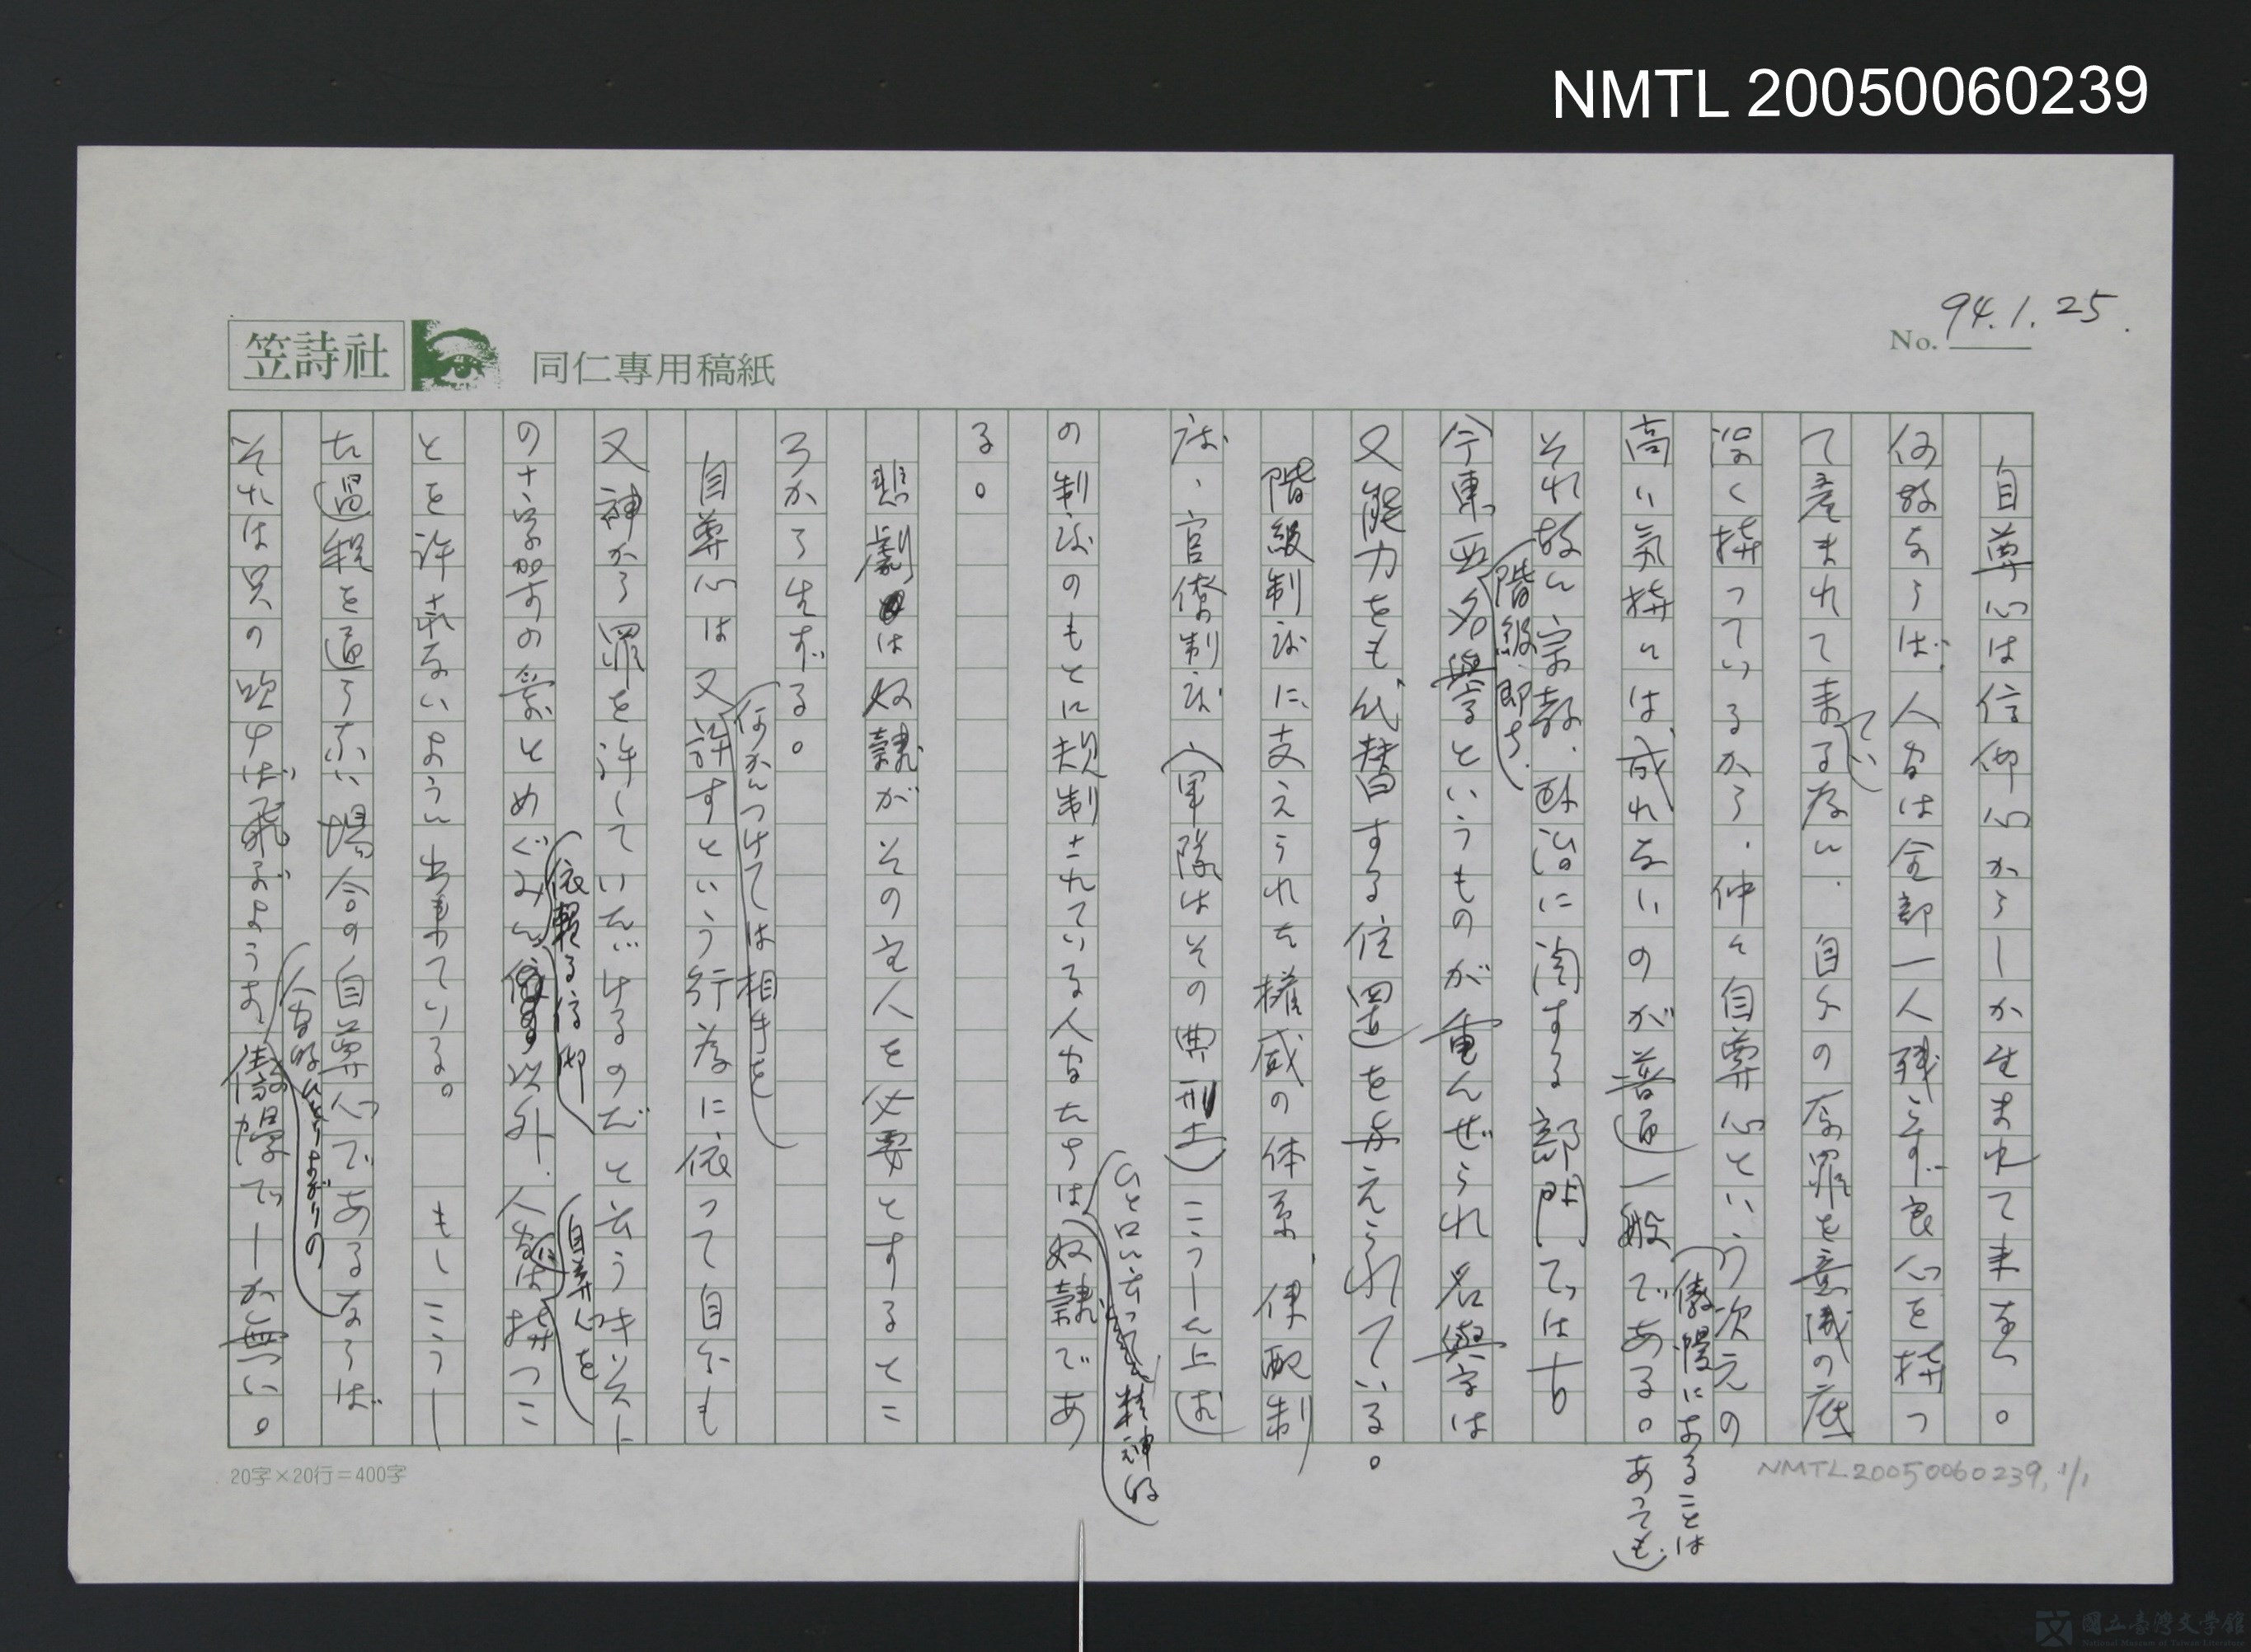 NMTL 20050060239
94.1.25.
No.
笠詩社
同仁專用稿紙
自尊心は信仰心からしか生まれて来ない。
何故ならば、人間は全部一人残らず良心を持つ
て産まれて来る為に、自分の原罪を意識の底
てい
深く持っているから、仲々自尊心という次元の
高い気持には成れないのが普通一般である。
(傲慢になることはあっても)
それ故に宗教、政治に関する部門では古
今東西、名誉というものが重んぜられ名誉は
階級、即ち、
又能力をも代替する位置を与えられている。
階級制度に支えられた権威の体系、俸配制
度、官僚制度(軍隊はその典型だ)こうした上お
の制度のもとに規制されている人間たちは奴隷であ
ひと口に云って精神的
る。
悲劇は奴隷がその主人を必要とするとこ
ろから生ずる。
自尊心は又許すという行為に依って自分も
何かにつけては相手を
又神から罪を許していただけるのだと云うキリスト
の十字架の愛とめぐみに 以外、人間は持つこ
依頼る信仰
自尊心を
とを許されないように出来ている。もしこうし
た過程を通らない場合の自尊心であるならば
それは只の吹けば飛ぶような傲慢でしか無い。
人間的な
20字×20行=400字
NMTL20050060239, 1/1
國立臺灣文學館
National Museum of Taiwan Literature